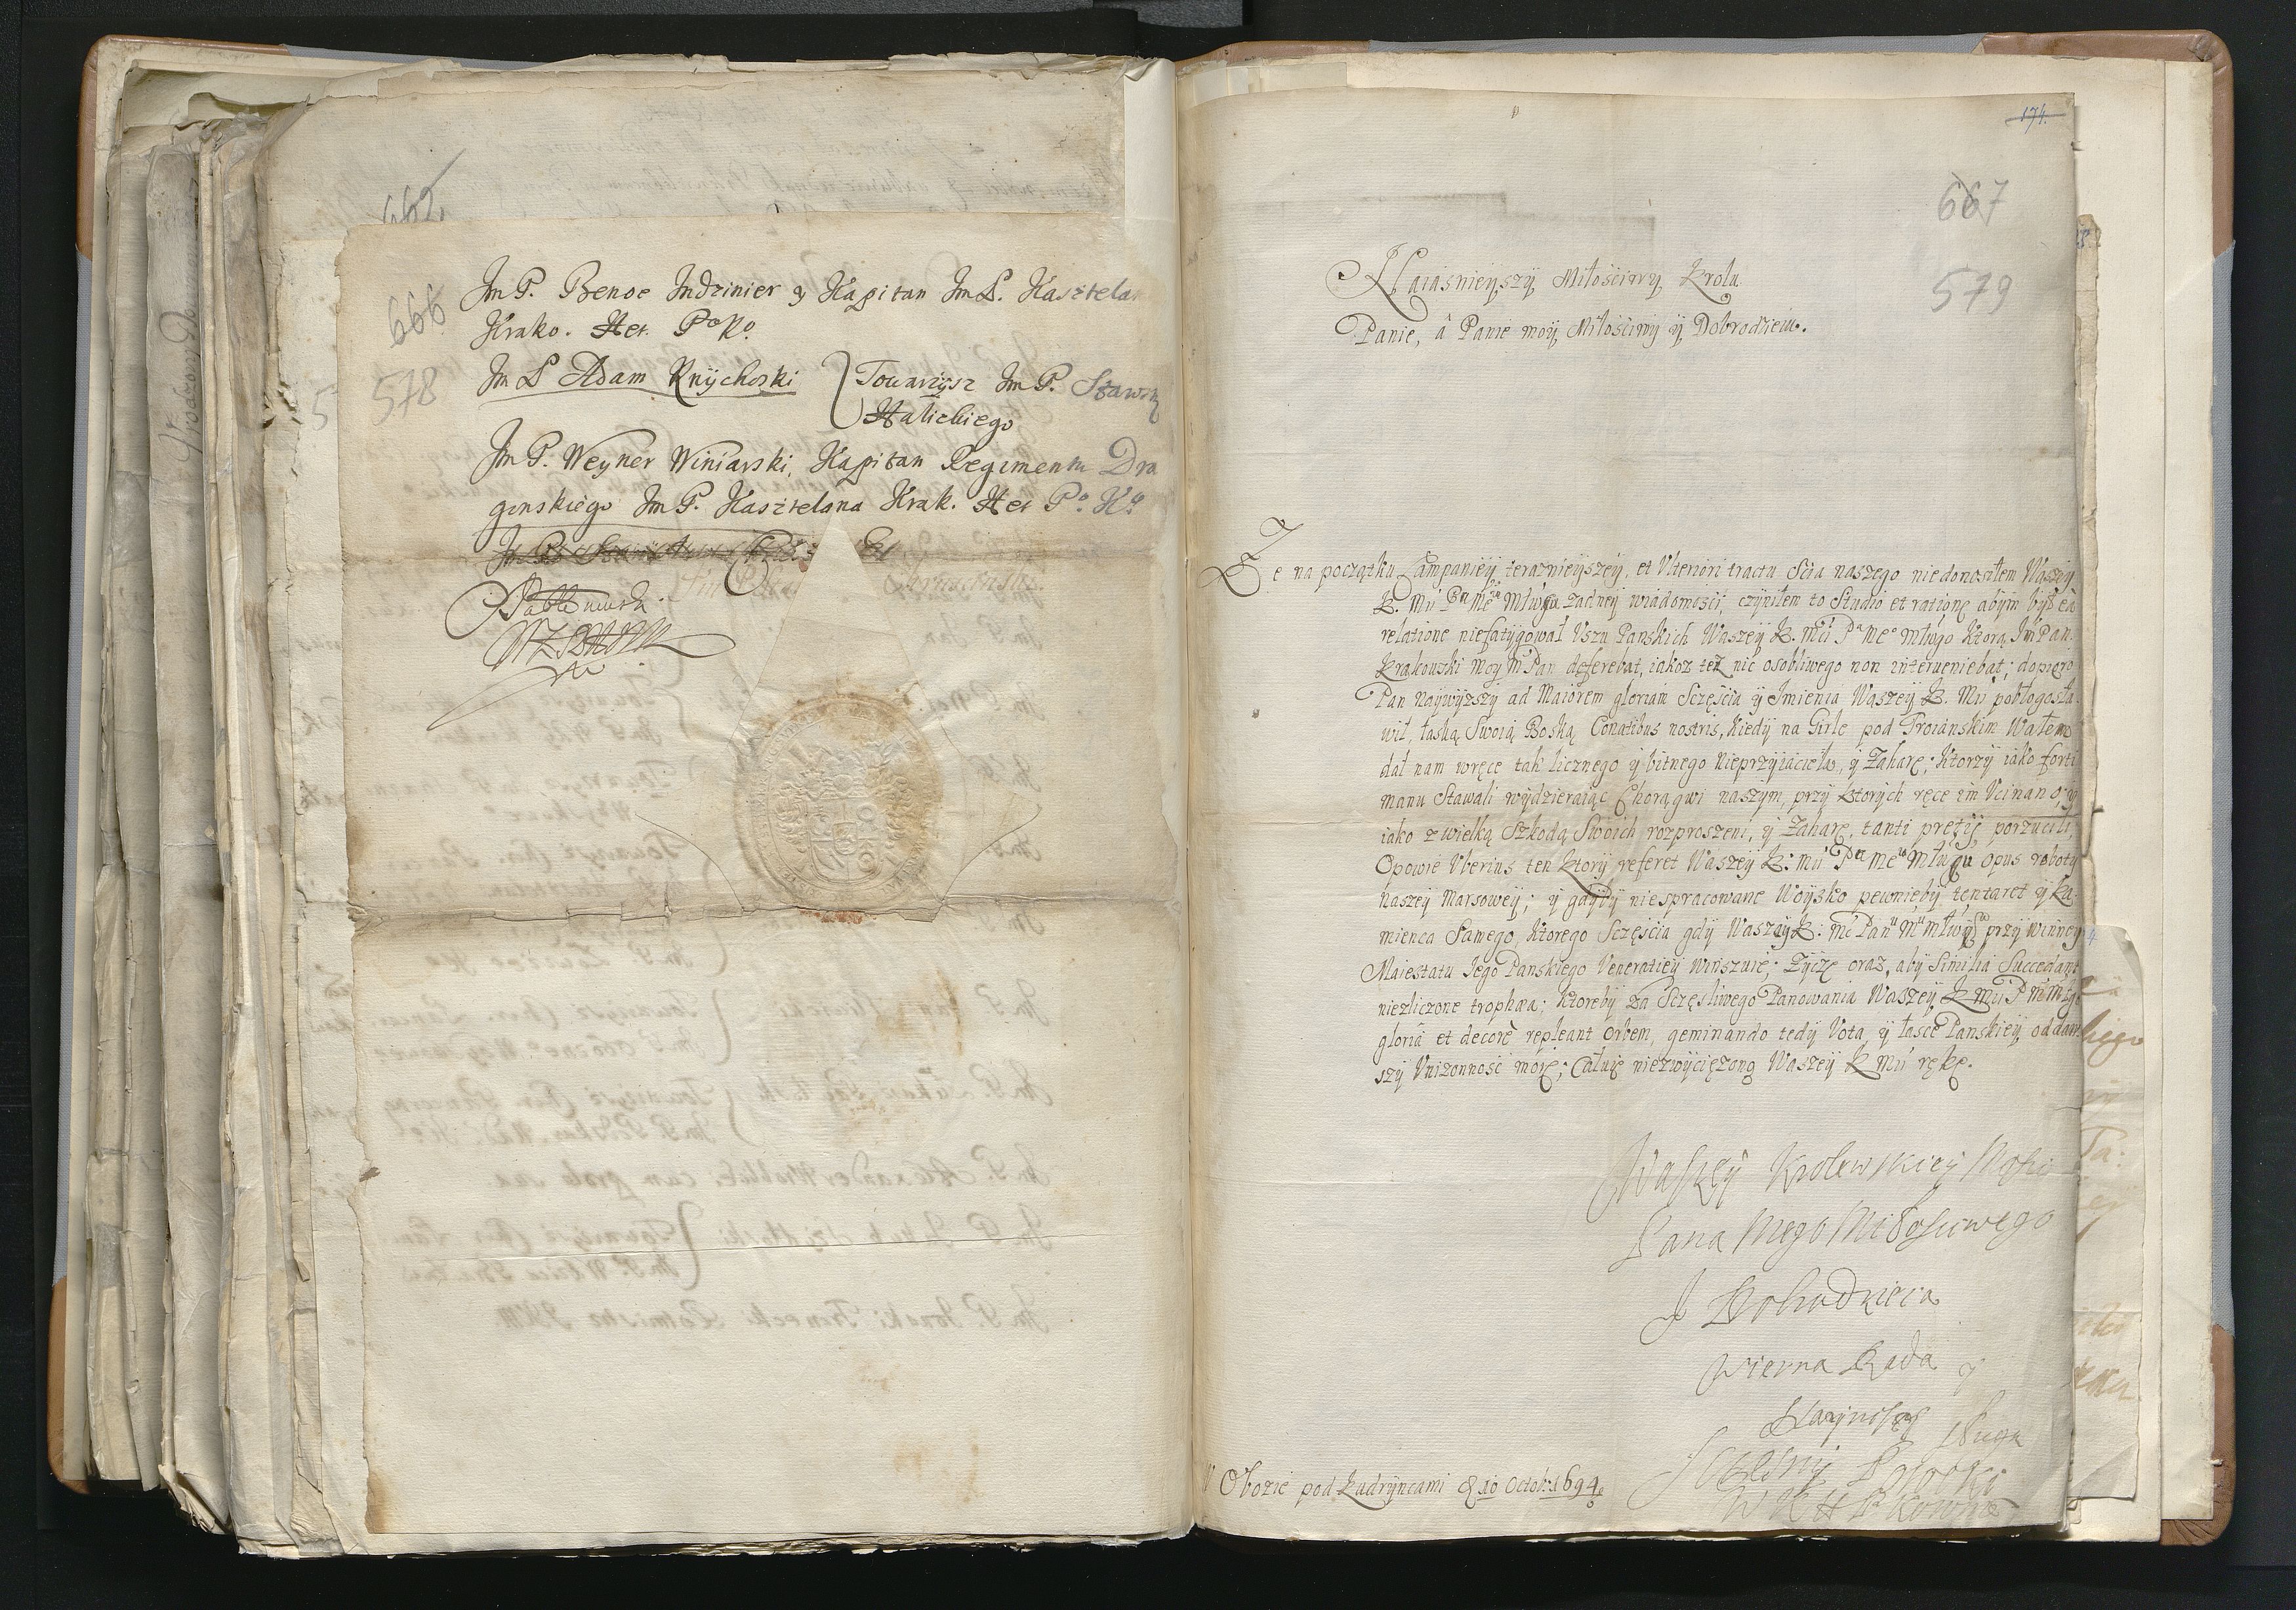 662
666
578
Im P. Benoe Indzinier y Kapitan Im P. Kasztelan
Krako. Het. P° K°
Im P Adam Knÿchoski } Towarzysz Im P. Staw
Halickiego
Im P. Weyner Winiarski, Kapitan Regimentu Dra
gonskiego Im P. Kasztelana Krak. Het P° K°
174.
667
579
NSaiasnieÿszÿ Miłosciwÿ Krolu
Panie, â Panie moÿ Miłosciwÿ ÿ Dobrodzieiu.
Ze na początku Campanieÿ teraznieÿszeÿ, et Vlteriori tractu Scia naszego niedonosiłem Waszeÿ
K. Mci Pu Me Młwgu zadneÿ wiadomosci, czÿniłem to Studio et ratione abÿm bÿł ea
relatione niefatÿgował Vszu Panskich Waszeÿ K. Mci Pa Me° Młwgo ktorą Im Pan
Krakowski moÿ M Pan deferebat, iakoz tez nic osobliwego non interueniebat; dopiero
Pan Naÿwÿzszÿ ad Maiorem gloriam Sczęscia ÿ Imienia Waszeÿ K. Mci pobłogosła
wił, łaską Swoią Boską Conatibus nostris, kiedÿ na Girle pod Troianskim Wałem
dał nam wręce tak licznego ÿ bitnego Nieprzÿiaciela, ÿ Zaharę; Ktorzÿ iako forti
manu Stawali wÿdzieraiąc Chorągwi naszÿm, przÿ ktorÿch ręce im Vcinano; ÿ
iako z wielką Szkodą Swoich rozproszeni, ÿ Zaharę, tanti pretÿ porzucili
Opowie Vberius ten ktorÿ referet Waszeÿ K: Mci Pu Me Młwgu opus robotÿ
naszeÿ Marsoweÿ; ÿ gdÿbÿ niespracowane Woÿsko pewniebÿ tentaret ÿ Ka
mienca Samego, ktorego Sczęscia gdÿ Waszeÿ K: Mc Panu Mu Młwÿ przÿ winneÿ
Maiestatu Iego Panskiego Veneratieÿ winszuię; Zÿczę oraz, abÿ Similia Succedant
niezliczone trophæa; ktorebÿ za Sczęsliwego Panowania Waszeÿ K Mci P M Młg
gloria et decore repleant orbem, geminando tedÿ Vota ÿ łasce Panskieÿ oddaw
szÿ Vnizonnosc moię; Całuię niezwÿcięzoną Waszeÿ K Mci rękę.
Waszeÿ Krolewskieÿ Msci
Pana Mego Miłosciwego
I Dobrodzieia
Wierna Rada y
Naÿnizszÿ Sługa
Sczesnÿ Potocki
W K H P Koronnÿ
W Obozie pod Kudrÿncami d 10 Octob: 1694